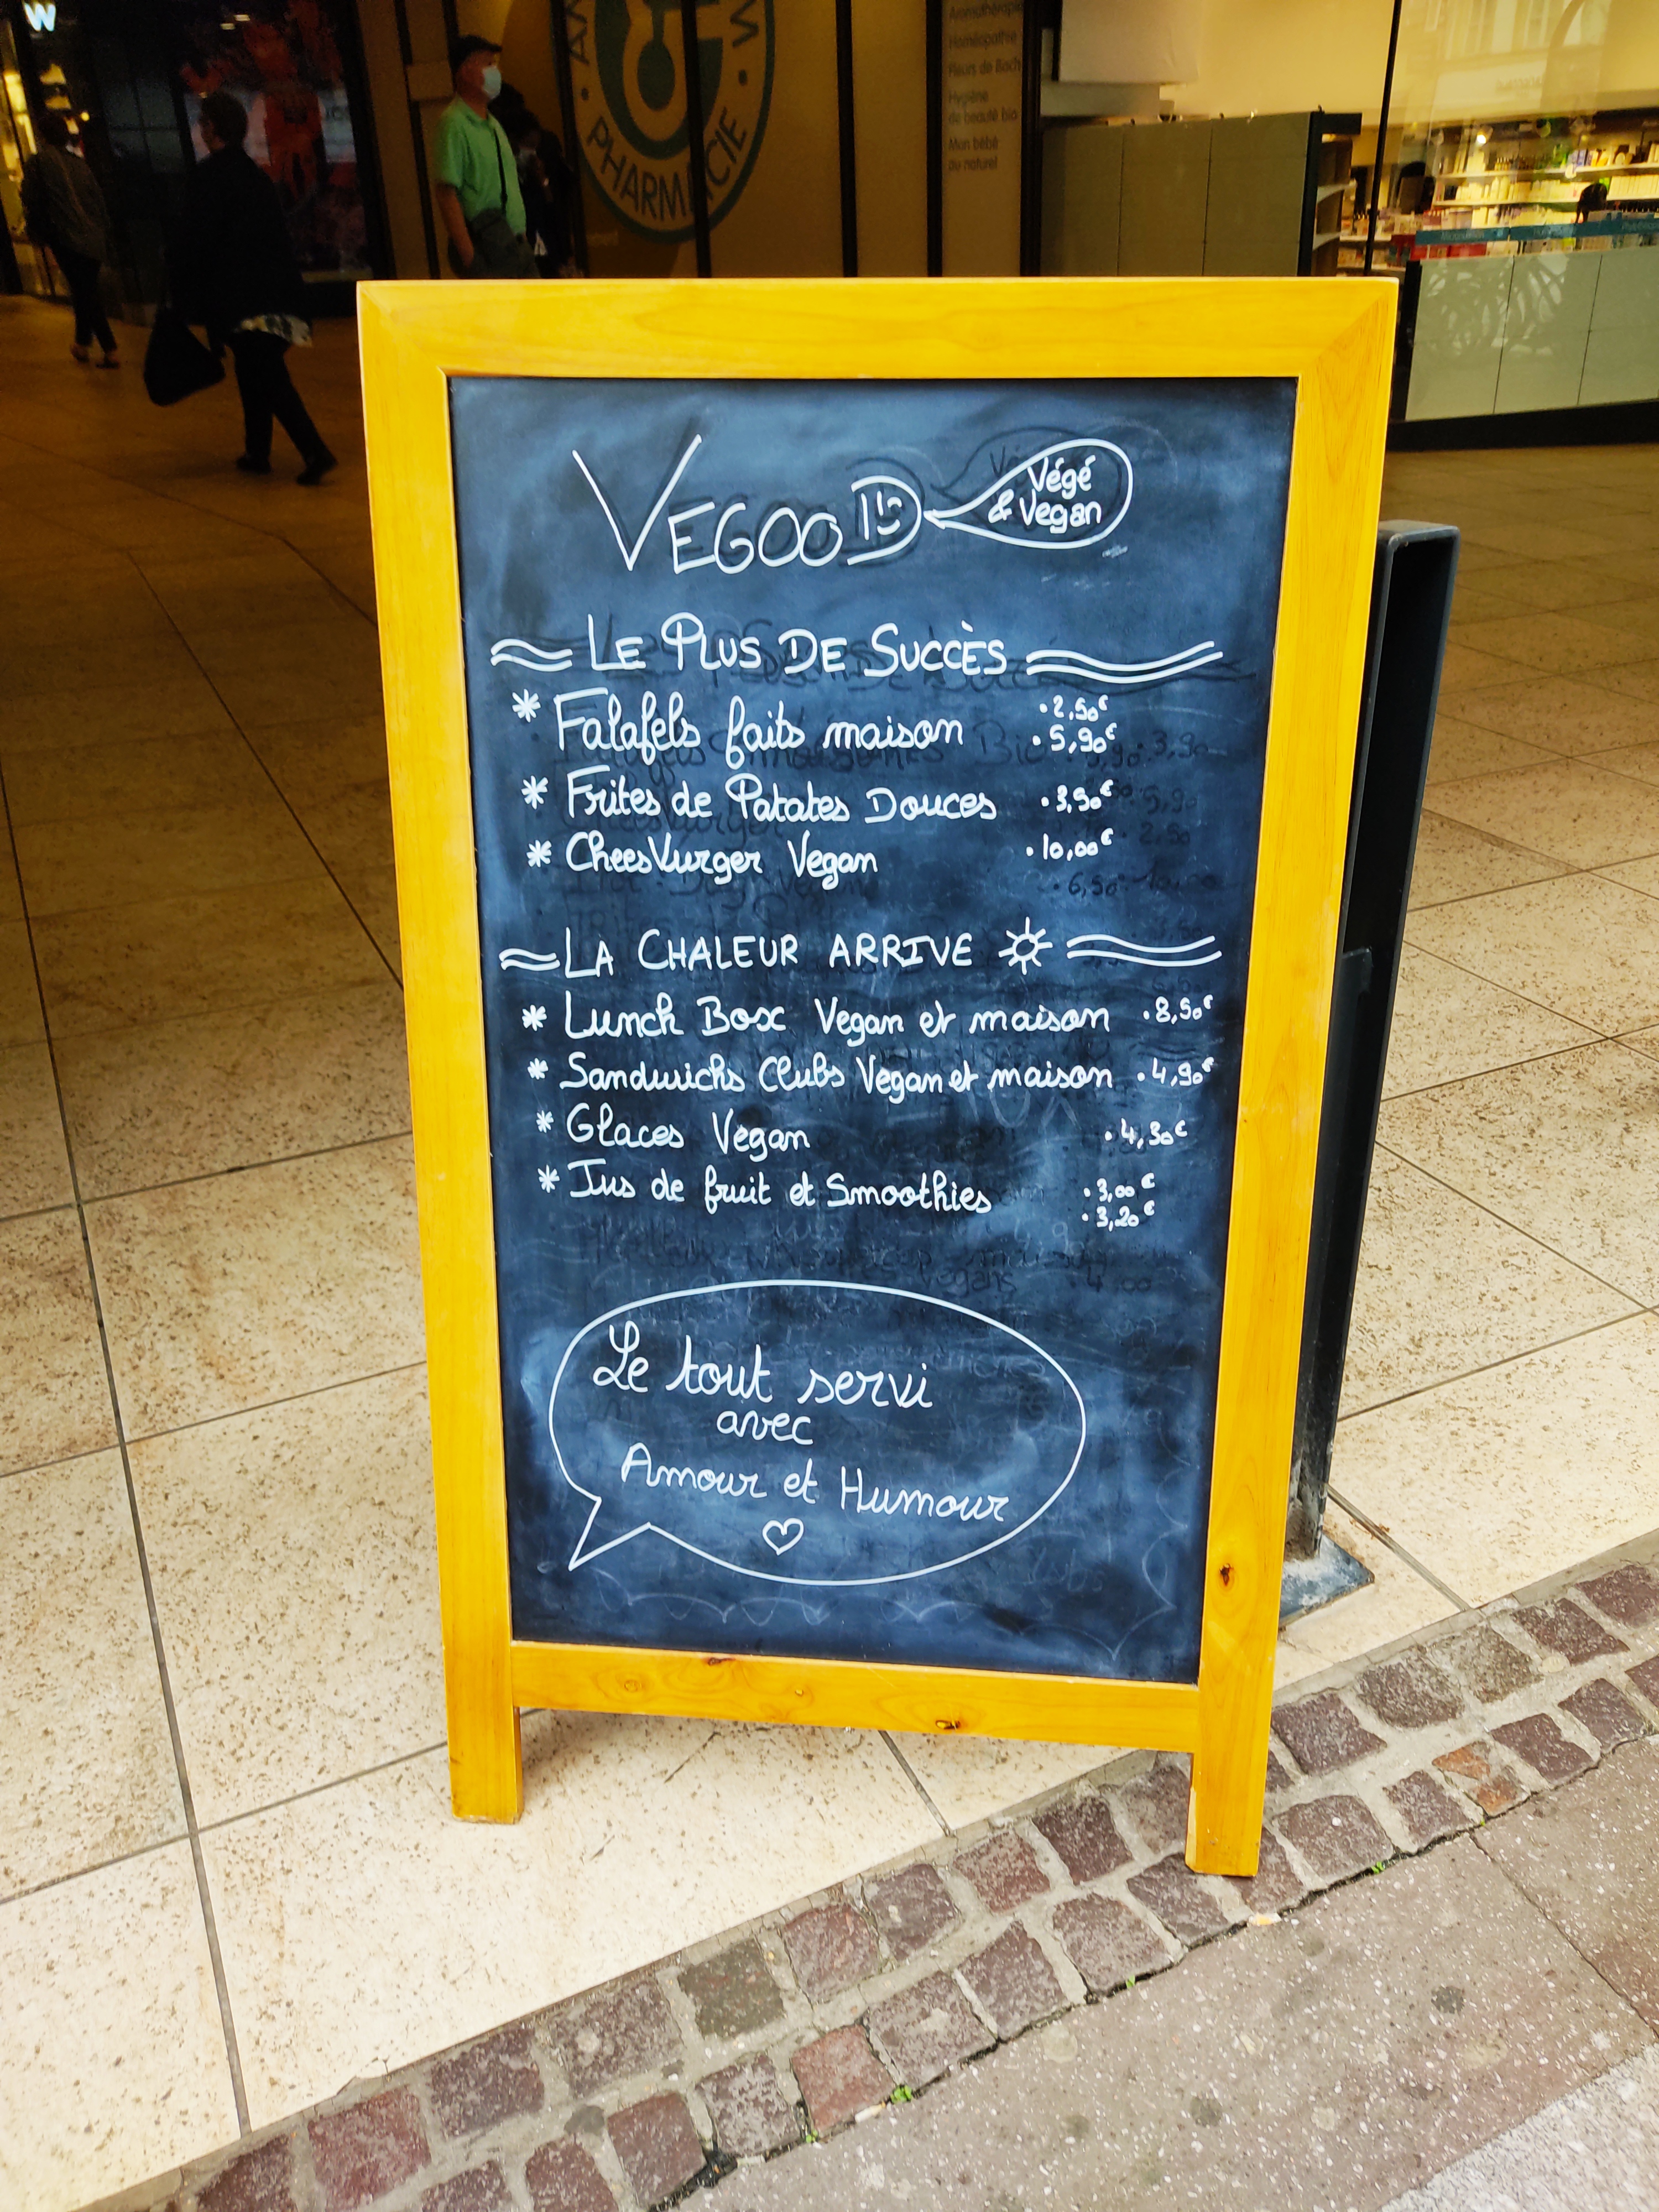 W
PHARMACIE
Aromathérapie
Homéopathie
Fleurs de Bach
Hygiène
de beauté bio
Mon bébé
au naturel
VEGOOD
Végé
& Vegan
LE PLUS DE SUCCÈS
* Falafels faits maison • 2,50€
• 5,90€
* Frites de Patates Douces • 3,50€
* CheesVurger Vegan • 10,00€
LA CHALEUR ARRIVE
* Lunch Box Vegan et maison • 8,50€
* Sandwichs Clubs Vegan et maison • 4,90€
* Glaces Vegan • 4,30€
* Jus de fruit et Smoothies • 3,00€
• 3,20€
Le tout servi
avec
Amour et Humour